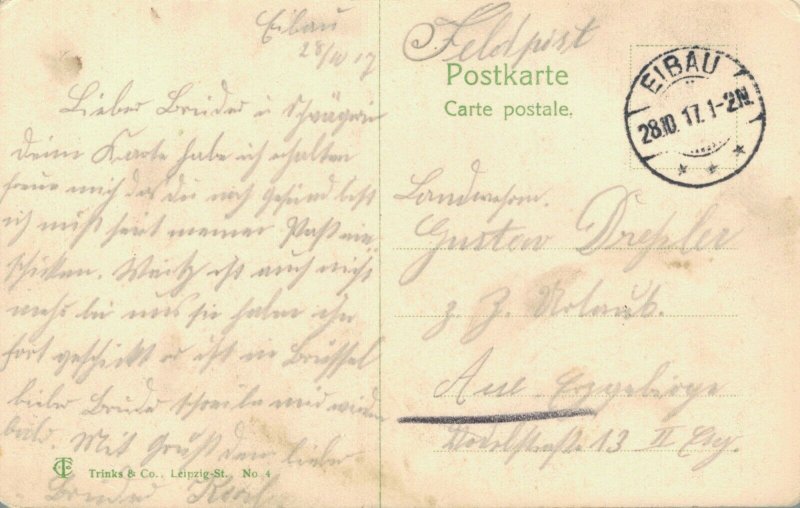 Eibau
28/10 17
Lieber Bruder u Schwägerin
deine Karte habe ich erhalten
freue mich das du noch Gesund bist
ich muß heit meiner
schicken. ist auch nicht
mehr bei uns sie haben ihn
fort geschickt er ist in Brüssel
lieber Bruder schreibe mir wieder
bald. Mit Gruß dein lieber
Bruder Karl
Trinks & Co., Leipzig-St. No 4
Feldpost
Postkarte
Carte postale.
EIBAU
28.10.17. 1-2N.
Landwehrm.
Gustav Dreßler
z. Z. Urlaub.
Aue Erzgebirge
13 II Etg.